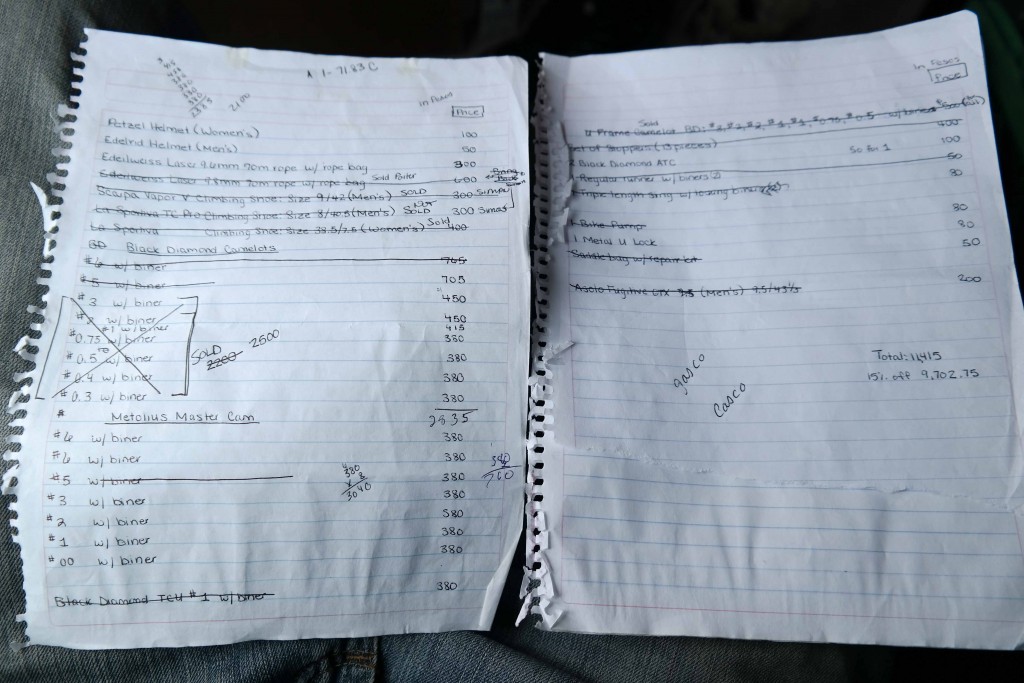 A 1-7183C
2100
In Pesos
Price
Petzel Helmet (Women's) 100
Edelrid Helmet (Men's) 50
Edeilweiss Laser 9.6mm 70m rope w/ rope bag 300
Edeilweiss Laser 9.8mm 70m rope w/ rope bag Sold
Scarpa Vapor V Climbing Shoe: Size 9/42 (Men's) SOLD 300
La Sportiva TC Pro Climbing Shoe: Size 8/40.5 (Men's) NOT SOLD 300
La Sportiva Climbing Shoe: Size 38.5/7.5 (Women's) Sold 400
BD Black Diamond Camelots
#6 w/ biner 765
#5 w/ biner 705
#3 w/ biner 450
#2 w/ biner 450
#1 w/ biner 415
#0.75 w/ biner 380
#0.5 w/ biner 380
#0.4 w/ biner 380
#0.3 w/ biner 380
SOLD
2200 2500
# Metolius Master Cam 2835
#6 w/ biner 380
#6 w/ biner 380
#5 w/ biner 380
#3 w/ biner 380
#2 w/ biner 380
#1 w/ biner 380
#00 w/ biner 380
380
x 8
3040
380
760
Black Diamond TCU #1 w/ biner 380
In Pesos
Price
Sold
Set of Stoppers (13 pieces) 400
2 Black Diamond ATC 50 for 1 100
Regular runner w/ biners 50
80
1 Bike Pump 80
1 Metal U Lock 80
Saddle bag w/ repair kit 50
Asolo Fugitive GTX 9.5 (Men's) 200
gasco
Casco
Total: 11,415
15% off 9,702.75